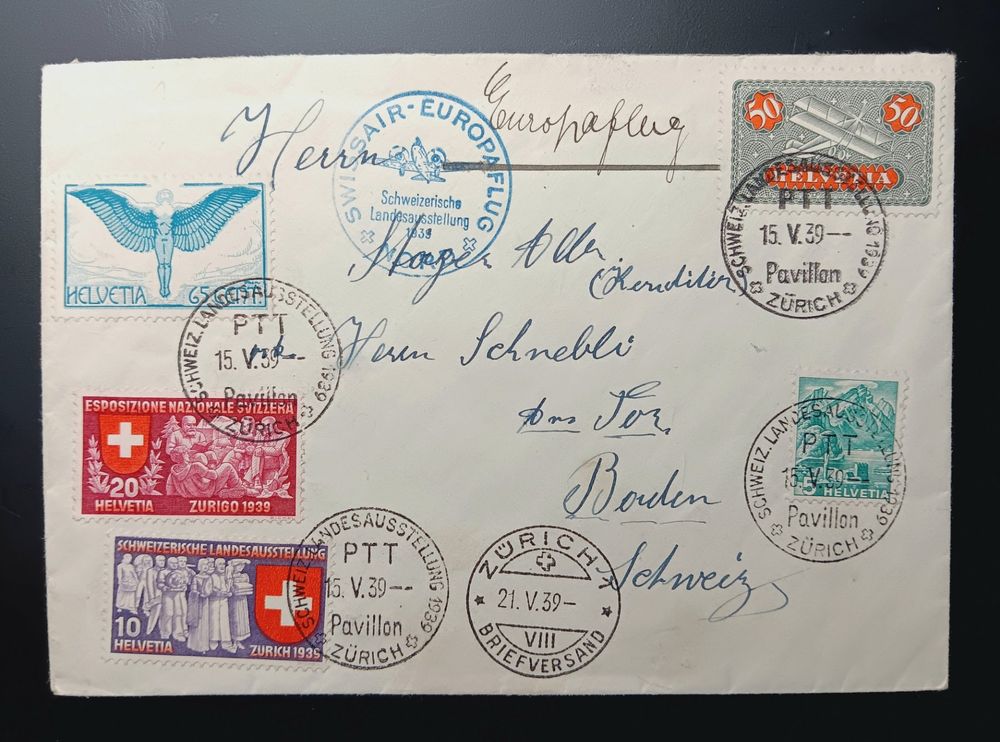 Europaflug
Herrn
SWISSAIR-EUROPAFLUG
Schweizerische
Landesausstellung
1939
50 50
HELVETIA
SCHWEIZ. LANDESAUSSTELLUNG 1939
PTT
15.V.39--
Pavillon
ZÜRICH
HELVETIA 65
(Konditor)
Herrn Schnebli
SCHWEIZ. LANDESAUSSTELLUNG 1939
PTT
15.V.39--
Pavillon
ZÜRICH
ESPOSIZIONE NAZIONALE SVIZZERA
20
HELVETIA ZURIGO 1939
Baden
Schweiz
5 HELVETIA
SCHWEIZ. LANDESAUSSTELLUNG 1939
PTT
15.V.39--
Pavillon
ZÜRICH
SCHWEIZERISCHE LANDESAUSSTELLUNG
10
HELVETIA ZURICH 1939
SCHWEIZ. LANDESAUSSTELLUNG 1939
PTT
15.V.39--
Pavillon
ZÜRICH
ZÜRICH 1
21.V.39-
VIII
BRIEFVERSAND